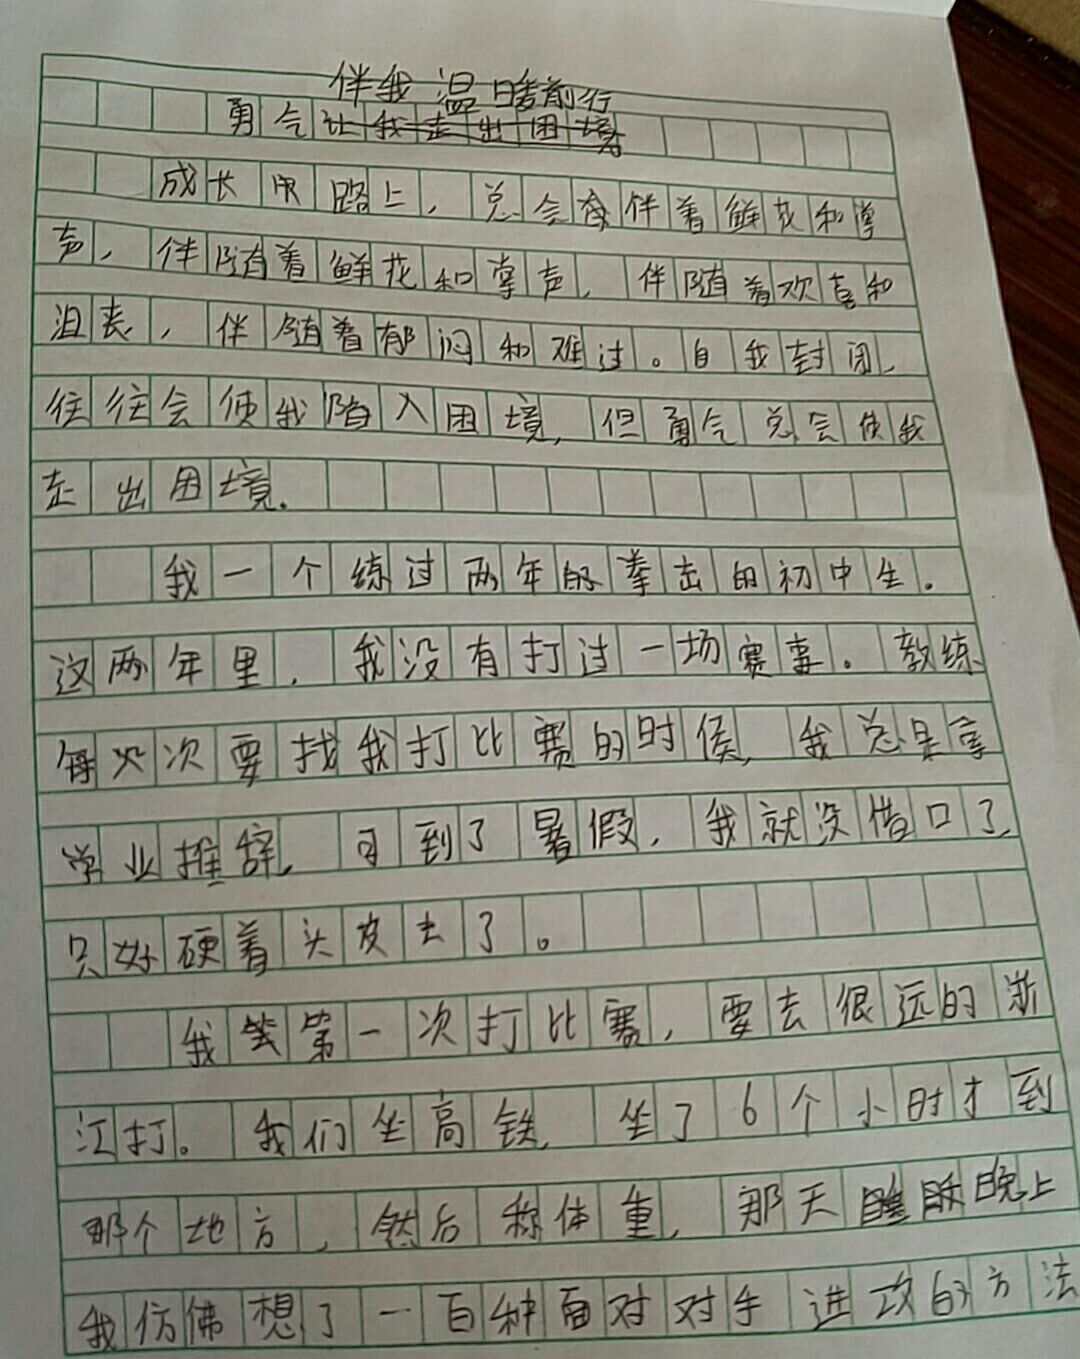 伴我温暖前行
勇气让我走出困境
成长的路上，总会伴着鲜花和掌
声，伴随着鲜花和掌声，伴随着欢喜和
沮丧，伴随着郁闷和难过。自我封闭，
往往会使我陷入困境，但勇气总会使我
走出困境.
我一个练过两年的拳击的初中生。
这两年里，我没有打过一场赛事。教练
每次次要找我打比赛的时候，我总是拿
学业推辞，可到了暑假，我就没借口了，
只好硬着头皮去了。
我第一次打比赛，要去很远的浙
江打。我们坐高铁，坐了6个小时才到
那个地方，然后称体重，那天晚上
我仿佛想了一百种面对对手进攻的方法